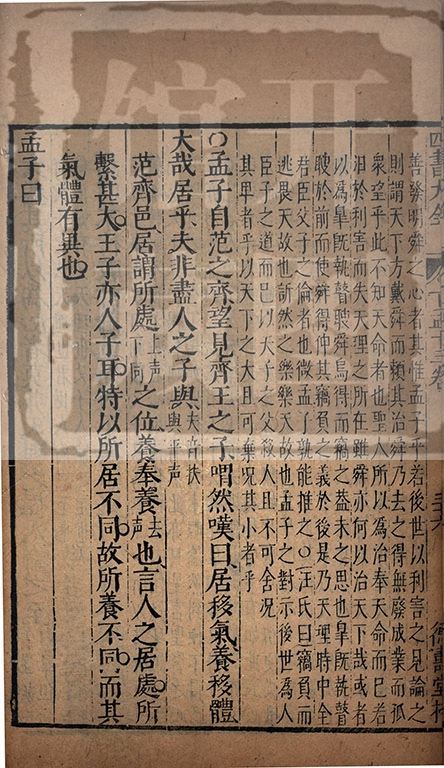 善發明舜之心者其惟孟子乎若後世以利害之見論之
則謂天下方戴舜而賴其治舜乃去之得無廢成業而孤
衆望乎此不知天命者也聖人所以為治奉天命而已若
汨於利害而失天理之所在雖舜亦何以治天下哉或者
以為臯旣執瞽瞍舜烏得而竊之葢未之思也臯旣執瞽
瞍於前而使舜得伸其竊負之義於後是乃天理時中全
君臣父子之倫者也微孟子孰能推之○汪氏曰竊負而
逃畏天故也訢然之樂樂天故也孟子之對示後世為人
臣子之道而已以天子之父殺人且不可舍况
其卑者乎以天下之大且可棄况其小者乎
○孟子自范之齊望見齊王之子喟然嘆曰居移氣養移體
大哉居乎夫非盡人之子與夫音扶與平声
范齊邑居謂所處上声下同之位養奉養去声也言人之居處所
繫甚大王子亦人子耳特以所居不同故所養不同而其
氣體有異也
孟子曰